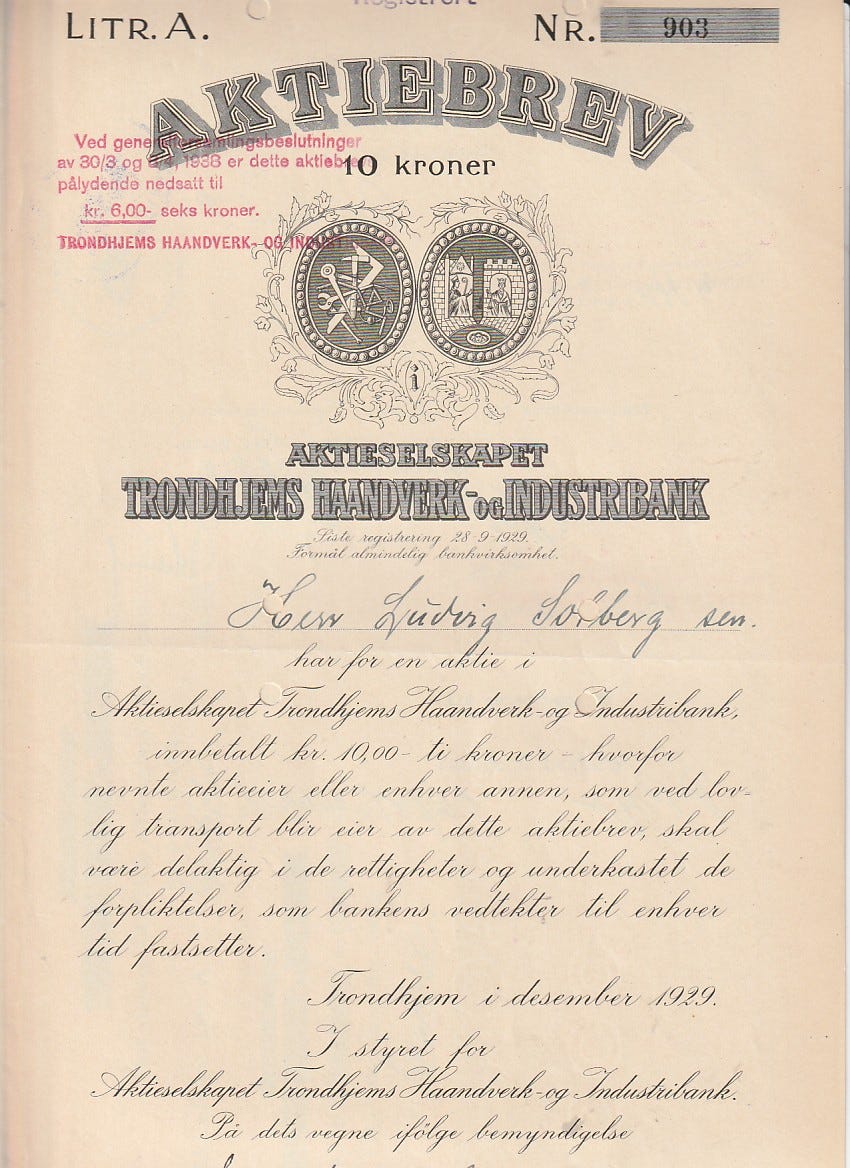 Registrert
LITR. A.
NR. 903
AKTIEBREV
10 kroner
Ved generalforsamlingsbeslutninger
av 30/3 og 1938 er dette aktiebrev
pålydende nedsatt til
kr. 6,00- seks kroner.
TRONDHJEMS HAANDVERK- OG
i
AKTIESELSKAPET
TRONDHJEMS HAANDVERK- OG INDUSTRIBANK
Siste registrering 28-9-1929.
Formål almindelig bankvirksomhet.
Herr Ludvig Sørberg sen.
har for en aktie i
Aktieselskapet Trondhjems Haandverk-og Industribank,
innbetalt kr. 10,00- ti kroner - hvorfor
nevnte aktieeier eller enhver annen, som ved lov-
lig transport blir eier av dette aktiebrev, skal
være delaktig i de rettigheter og underkastet de
forpliktelser, som bankens vedtekter til enhver
tid fastsetter.
Trondhjem i desember 1929.
I styret for
Aktieselskapet Trondhjems Haandverk-og Industribank.
På dets vegne ifølge bemyndigelse